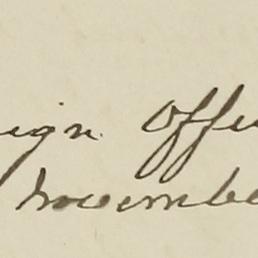 eign Offi
Novembe